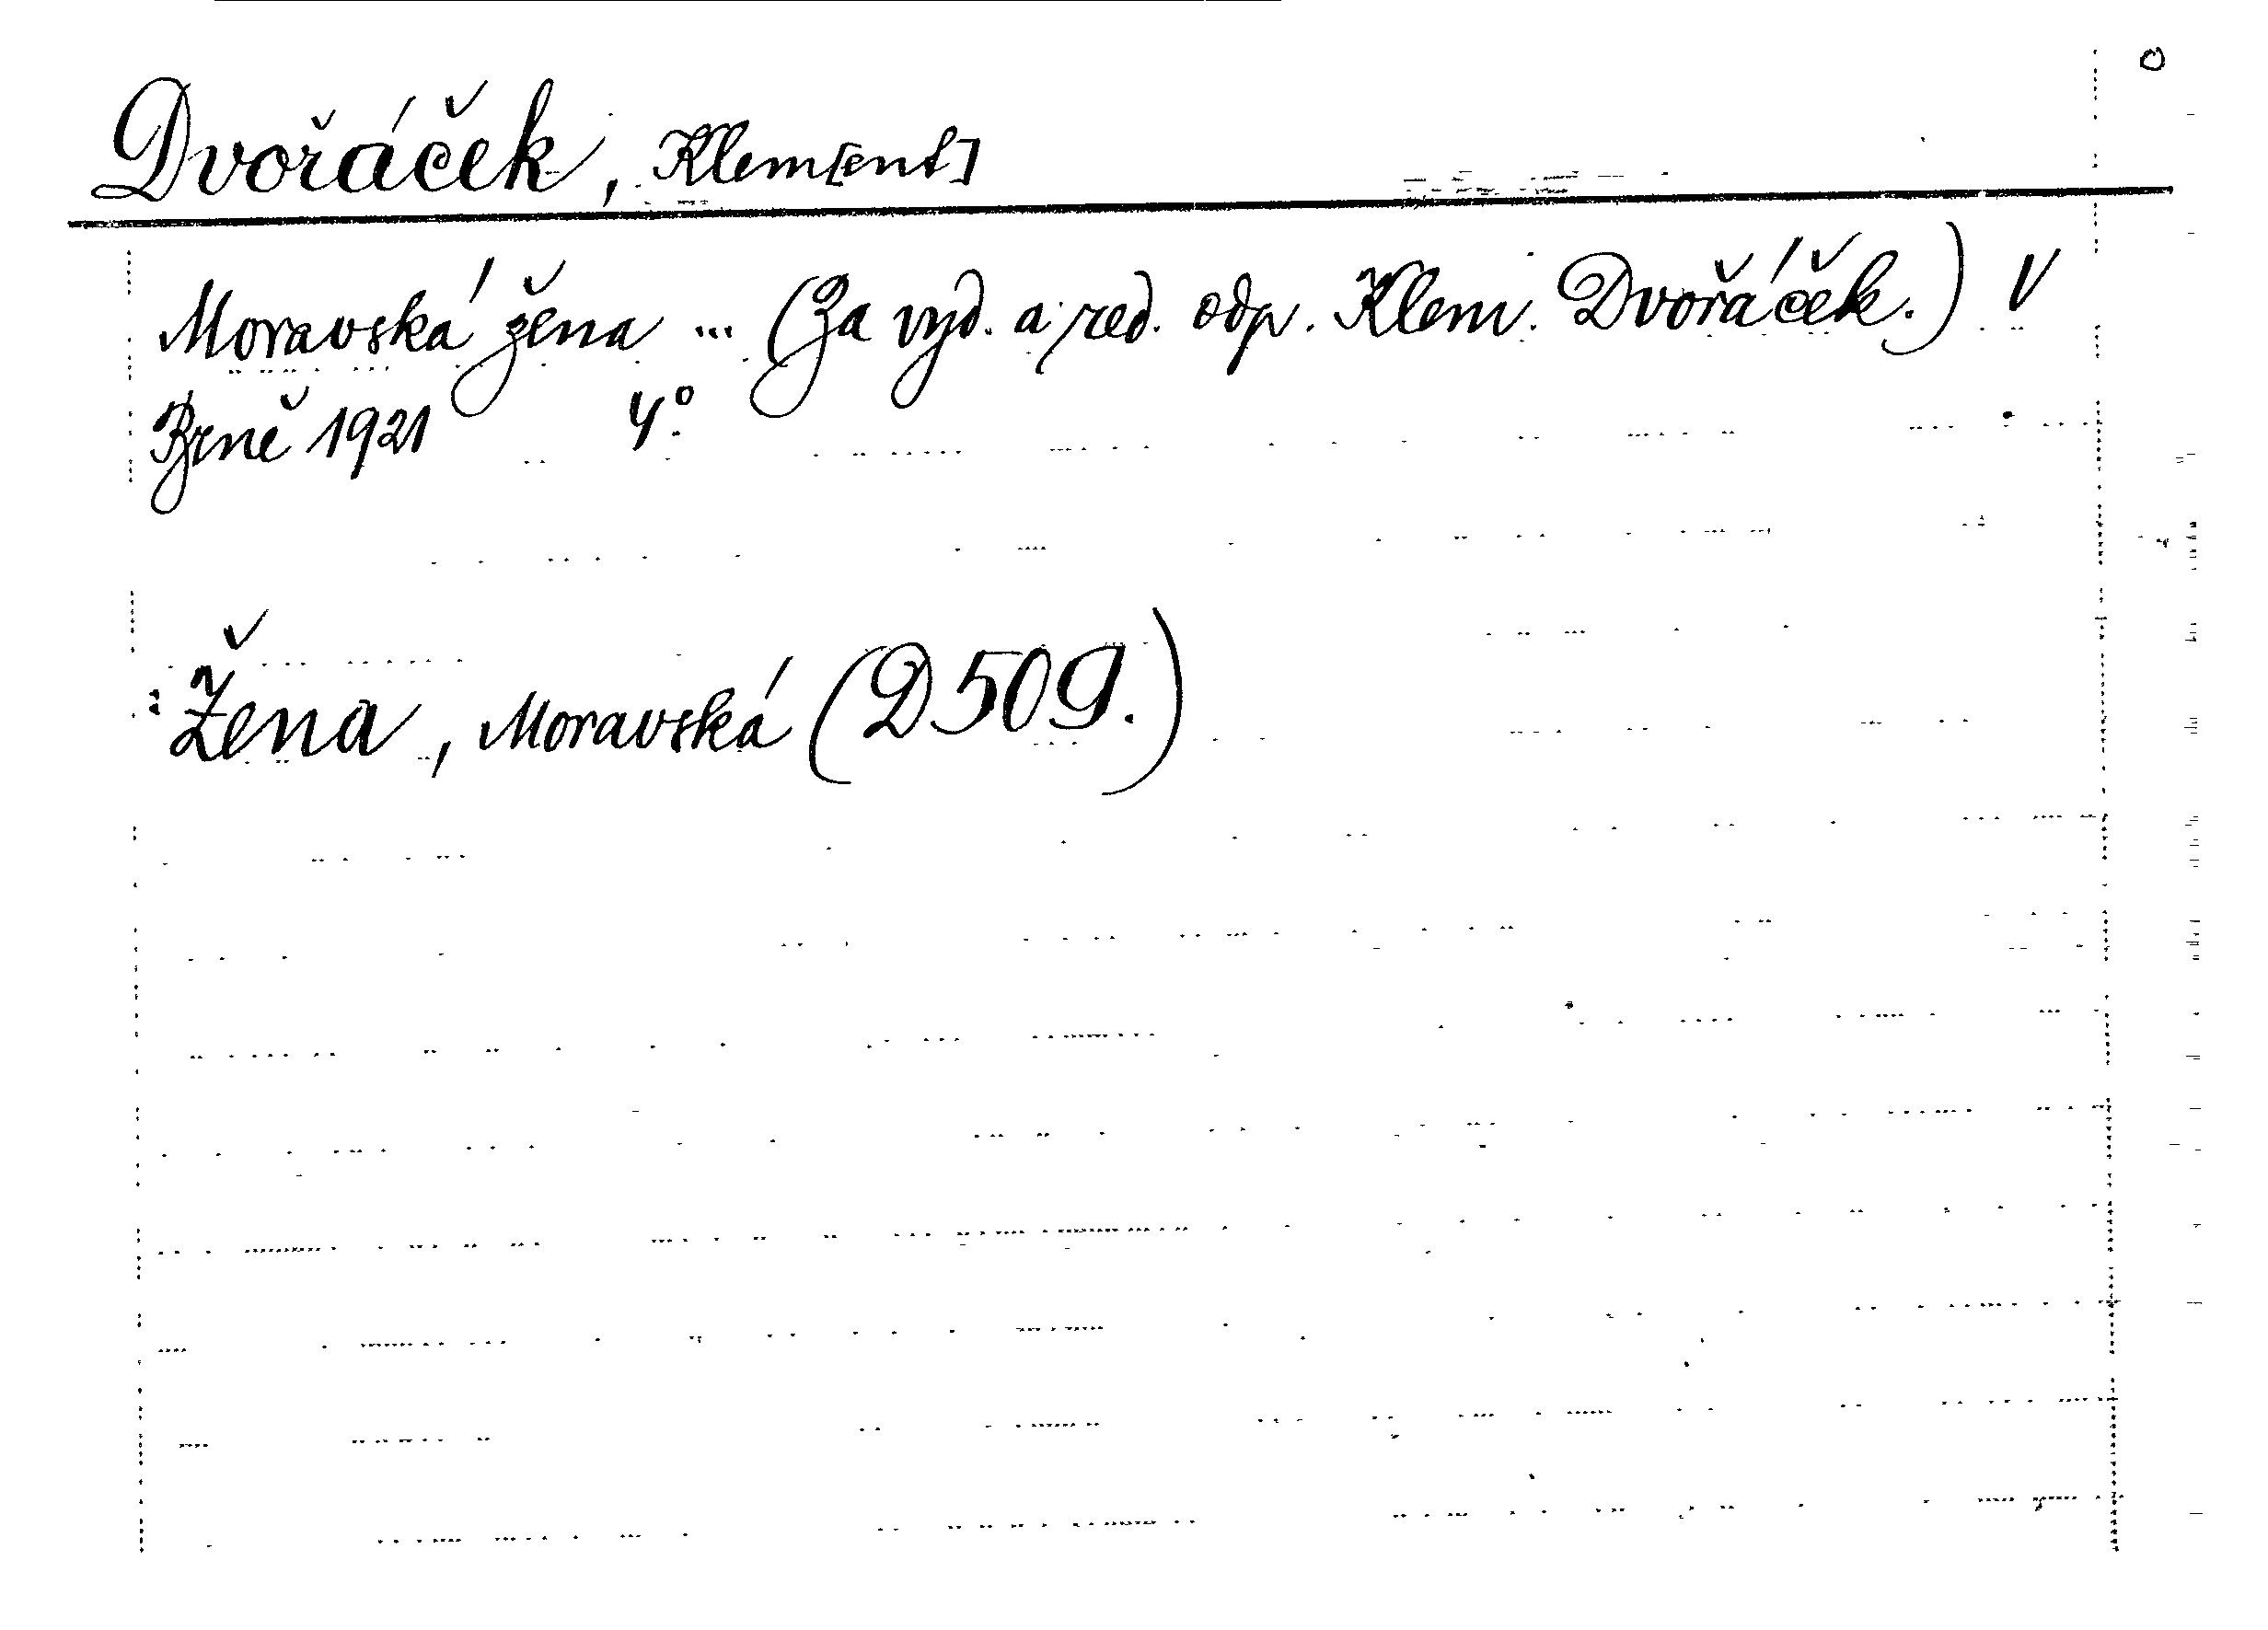 Dvořáček, Klem[ent]
Moravská žena ... (Za vyd. a red. odp. Klem. Dvořáček.) V
Brně 1921 4°
: Žena, Moravská (D 509.)